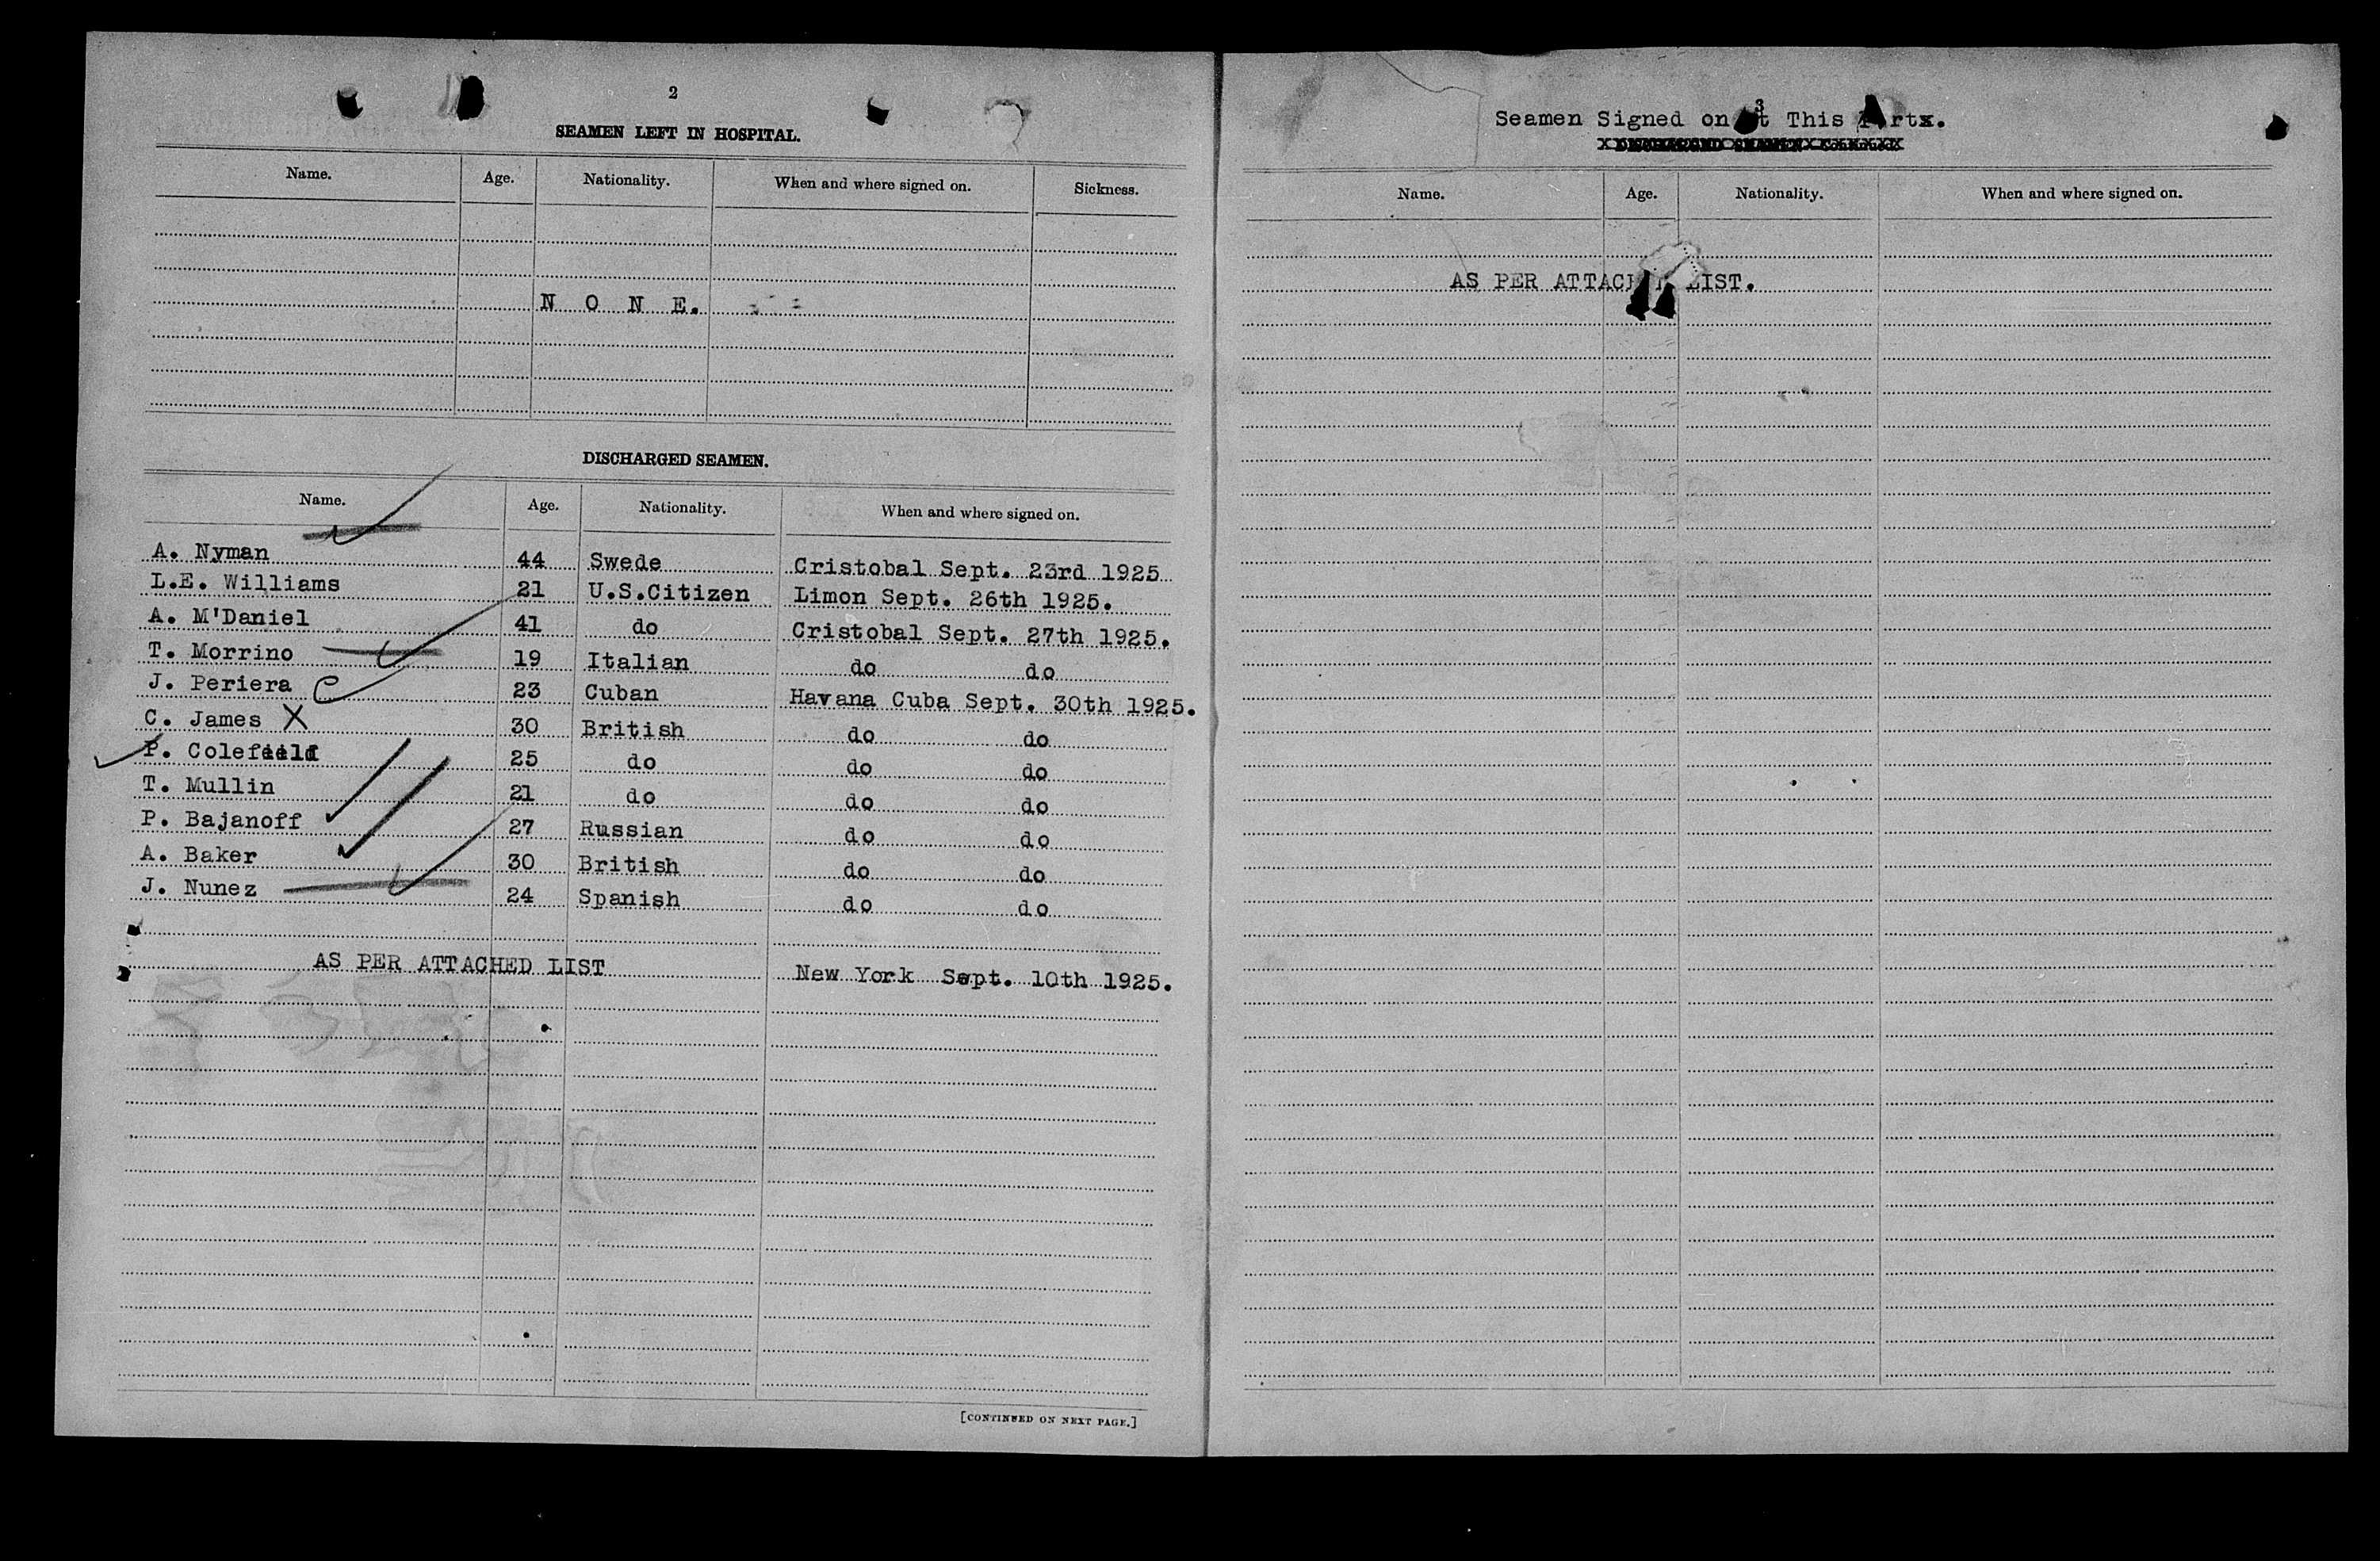 2
SEAMEN LEFT IN HOSPITAL.
Name. Age. Nationality. When and where signed on. Sickness.
N O N E.
DISCHARGED SEAMEN.
Name. Age. Nationality. When and where signed on.
A. Nyman 44 Swede Cristobal Sept. 23rd 1925
L.E. Williams 21 U.S.Citizen Limon Sept. 26th 1925.
A. M'Daniel 41 do Cristobal Sept. 27th 1925.
T. Morrino 19 Italian do do
J. Periera C 23 Cuban Havana Cuba Sept. 30th 1925.
C. James X 30 British do do
P. Colefield 25 do do do
T. Mullin 21 do do do
P. Bajanoff 27 Russian do do
A. Baker 30 British do do
J. Nunez 24 Spanish do do
AS PER ATTACHED LIST New York Sept. 10th 1925.
[CONTINUED ON NEXT PAGE.]
3
Seamen Signed on This
DISCHARGED SEAMEN—Continued.
Name. Age. Nationality. When and where signed on.
AS PER LIST.